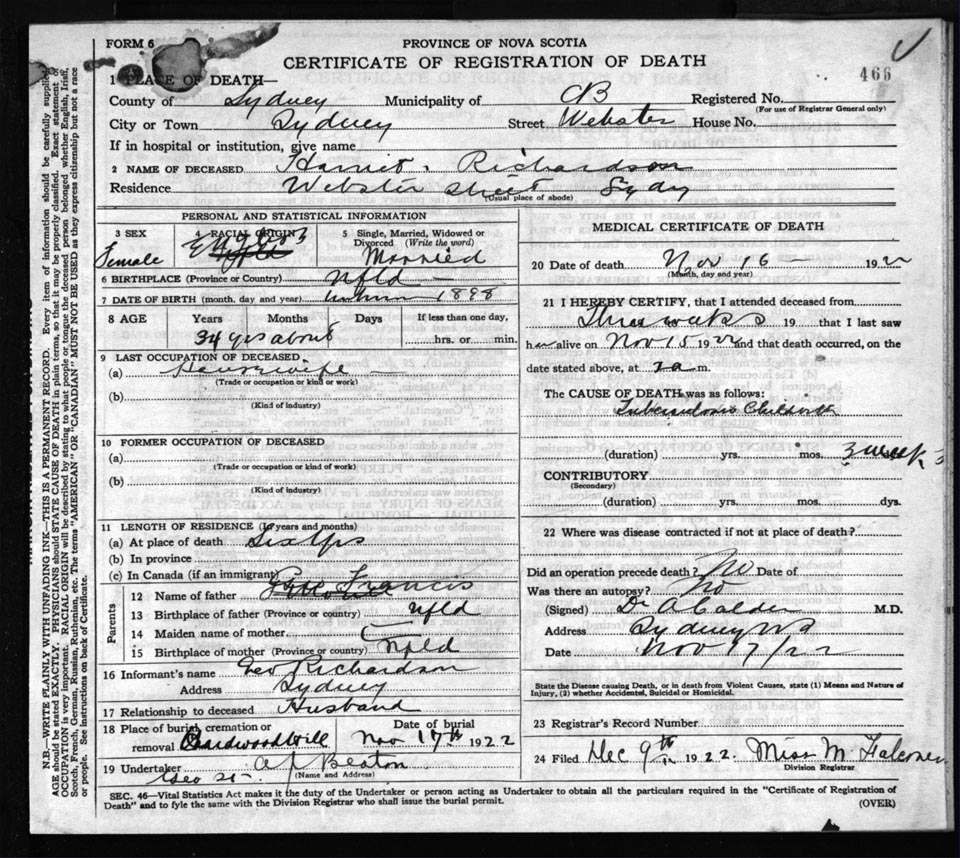 FORM 6
PROVINCE OF NOVA SCOTIA
CERTIFICATE OF REGISTRATION OF DEATH
466
1 PLACE OF DEATH—
County of Sydney Municipality of CB Registered No.
(For use of Registrar General only)
City or Town Sydney Street Webster House No.
If in hospital or institution, give name
2 NAME OF DECEASED Richardson
Residence Webster Street Sydny
(Usual place of abode)
PERSONAL AND STATISTICAL INFORMATION
3 SEX Female
4 RACIAL ORIGIN English
5 Single, Married, Widowed or Divorced (Write the word) Married
6 BIRTHPLACE (Province or Country) Nfld —
7 DATE OF BIRTH (month, day and year) 1898
8 AGE Years Months Days If less than one day,
34 yrs about hrs. or min.
9 LAST OCCUPATION OF DECEASED
(a) Housewife —
(Trade or occupation or kind or work)
(b)
(Kind of industry)
10 FORMER OCCUPATION OF DECEASED
(a)
(Trade or occupation or kind of work)
(b)
(Kind of industry)
11 LENGTH OF RESIDENCE (In years and months)
(a) At place of death
(b) In province
(c) In Canada (if an immigrant)
Parents
12 Name of father Francis
13 Birthplace of father (Province or country) Nfld
14 Maiden name of mother
15 Birthplace of mother (Province or country) Nfld
16 Informant's name Geo Richardson
Address Sydney
17 Relationship to deceased Husband
18 Place of burial, cremation or removal Hardwood Hill Date of burial Nov 17th 1922
19 Undertaker A J Beaton
(Name and Address)
MEDICAL CERTIFICATE OF DEATH
20 Date of death Nov 16 1922
(Month, day and year)
21 I HEREBY CERTIFY, that I attended deceased from
Three weeks 19 that I last saw
her alive on Nov 15 1922 and that death occurred, on
date stated above, at m.
The CAUSE OF DEATH was as follows:
Tuberculosis Childbirth
(duration) yrs. mos. 3 weeks
CONTRIBUTORY
(Secondary)
(duration) yrs. mos. dys.
22 Where was disease contracted if not at place of death?
Did an operation precede death? No Date of
Was there an autopsy? No
(Signed) Dr A Calder M.D.
Address Sydney NS
Date Nov 17/22
State the Disease causing Death, or in death from Violent Causes, state (1) Means and Nature of
Injury, (2) whether Accidental, Suicidal or Homicidal.
23 Registrar's Record Number
24 Filed Dec 9th 1922. Miss M Falconer
Division Registrar
SEC. 46—Vital Statistics Act makes it the duty of the Undertaker or person acting as Undertaker to obtain all the particulars required in the "Certificate of Registration of
Death" and to fyle the same with the Division Registrar who shall issue the burial permit.
(OVER)
N.B.—WRITE PLAINLY WITH UNFADING INK—THIS IS A PERMANENT RECORD. Every item of information should be carefully supplied.
AGE should be stated EXACTLY. PHYSICIANS should STATE CAUSE OF DEATH in plain terms, so that it may be properly classified. Exact statement of
OCCUPATION is very important. RACIAL ORIGIN will be described by stating to what people or tongue the deceased person belonged whether English, Irish,
Scotch, French, German, Russian, Ruthenian, etc. The terms "AMERICAN" OR "CANADIAN" MUST NOT BE USED as they express citizenship but not a race
or people. See instructions on back of Certificate.